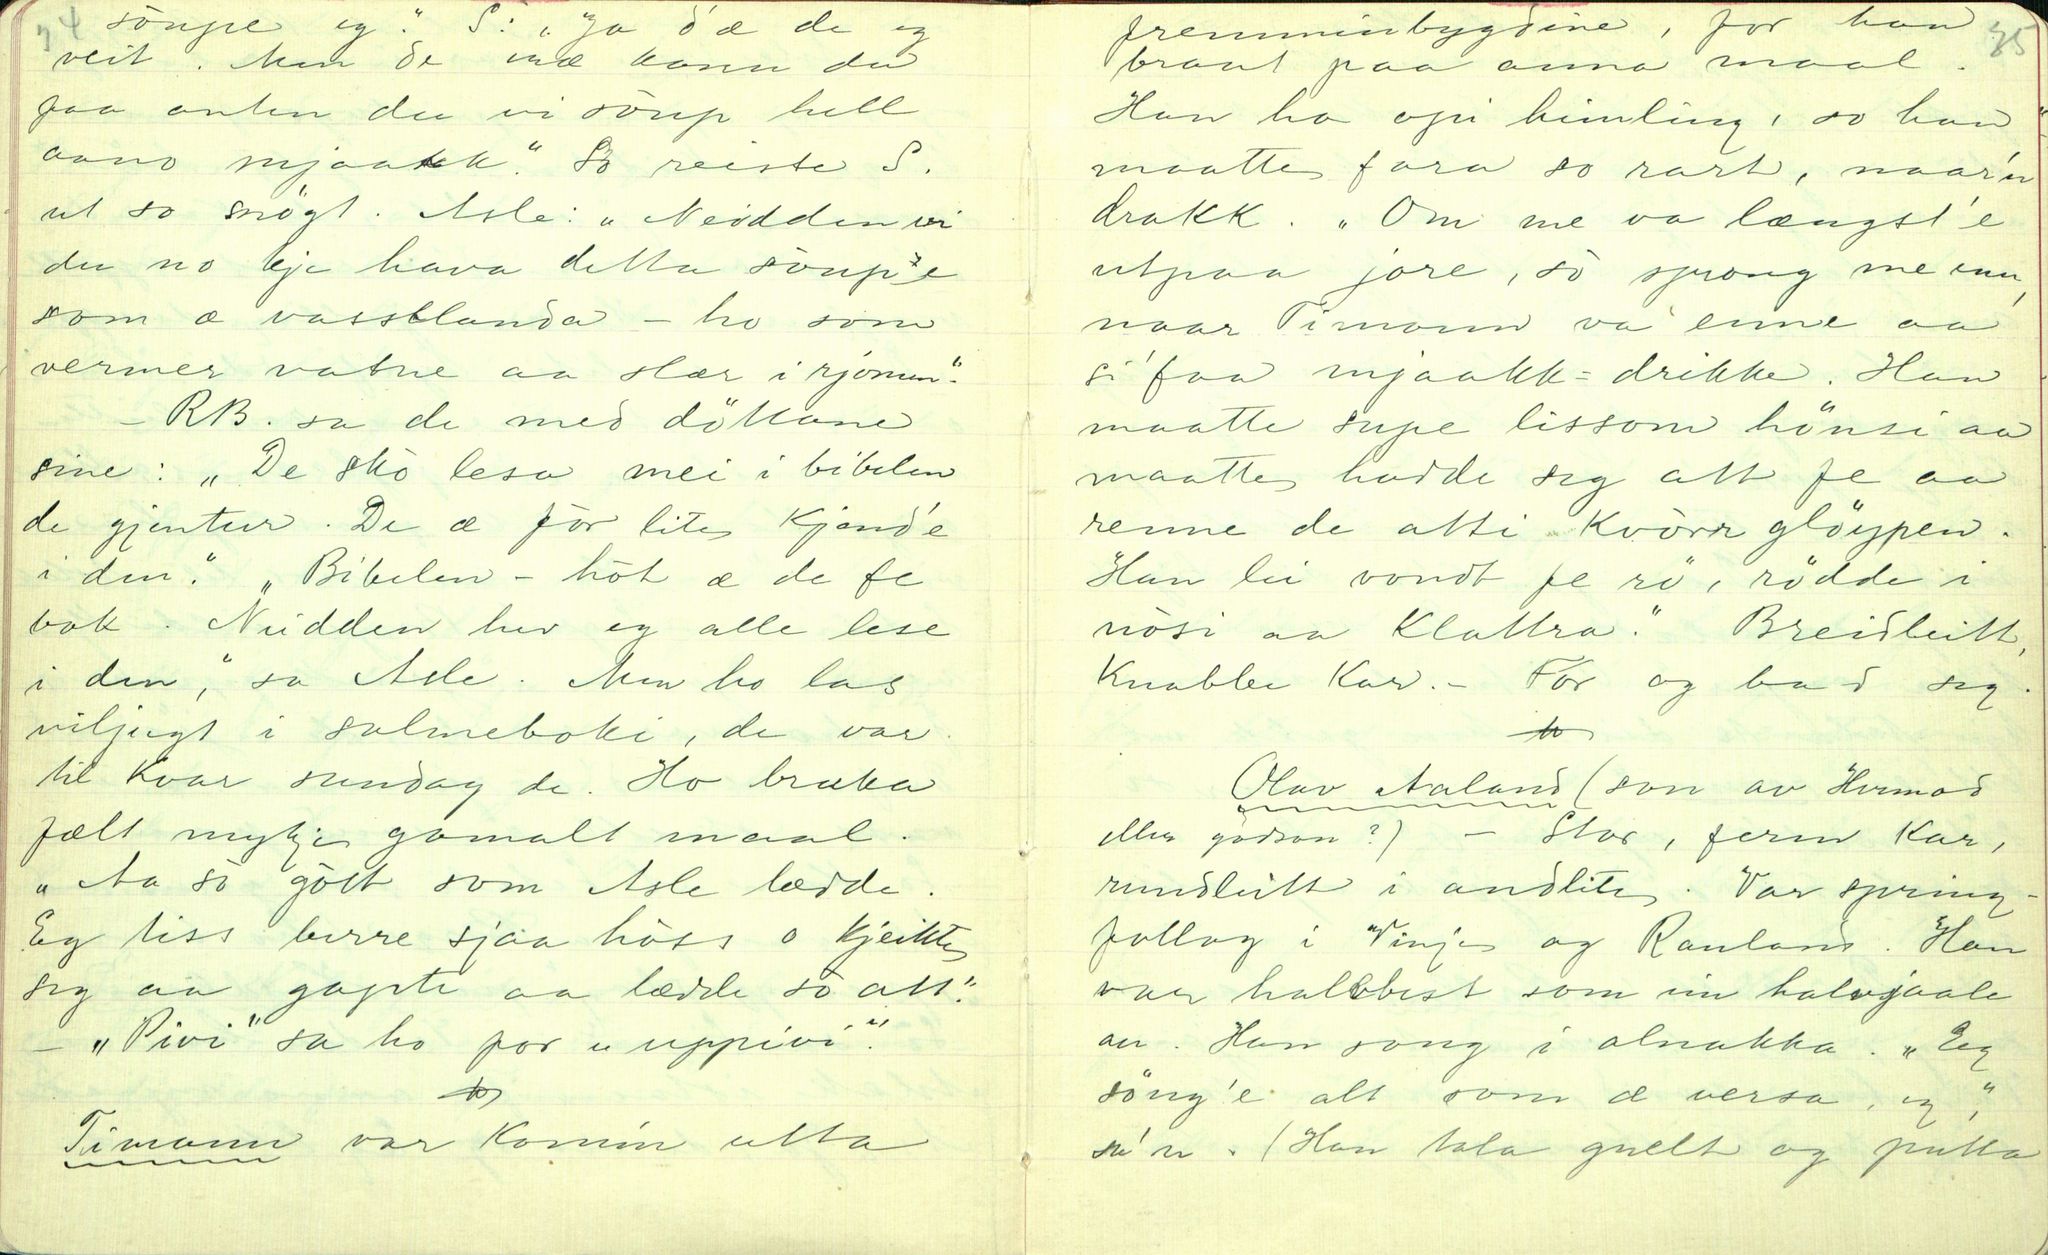 34
söupe eg." S: "Ja d'æ de eg
veit. Men de mæ kann du
faa anten du vi söup hell
aano mjaakk." So reiste S.
ut so snögt. Asle: "Neidden vi
du no kje hava detta söup'e
som æ vassblanda - ho som
vermer vatne aa slær i rjómen".
- RB. sa de med döttane
sine: "De skò lesa mei i bibelen
de gjentur. De æ för lite kjend'e
i den." "Bibelen - hòt æ de fe
bok. Neidden hev eg alle lese
i den," sa Asle. Men ho las
viljugt i salmeboki, de var
til kvar sundag de. Ho bruka
fælt mykje gamalt maal.
"Aa sò gòtt som Asle lædde.
Eg tiss berre sjaa hòss o kjeikte
seg aa gapte aa lædde sò att".
- "Pivi" sa ho for "uppivi".
Timann var komin utta
35
fremminbygdine, for han
braut paa anna maal.
Han ha opi himling, so han
maatte fara so rart, naar'n
drakk. "Om me va længst'e
utpaa jore, sò sprong me inn,
naar Timann va enne aa
si' faa mjaakk-drikke. Han
maatte supe lissom hönsi aa
maatte hadde seg att fe aa
renne de atti kvòrr glöypen.
Han lei vondt fe rö, rödde i
nòsi aa klattra." Breidleitt,
knabbe kar. - För og bad seg.
Olav Aaland (son av Hermod
eller godson?) - Stor, ferm kar,
rundleitt i andlite. Var spring-
fallag i Vinje og Rauland. Han
var halvbest som ein halvgaale
au. Han song i alnakka. "Eg
söng'e alt som æ versa, eg",
sa'n. (Han tala gnelt og putta